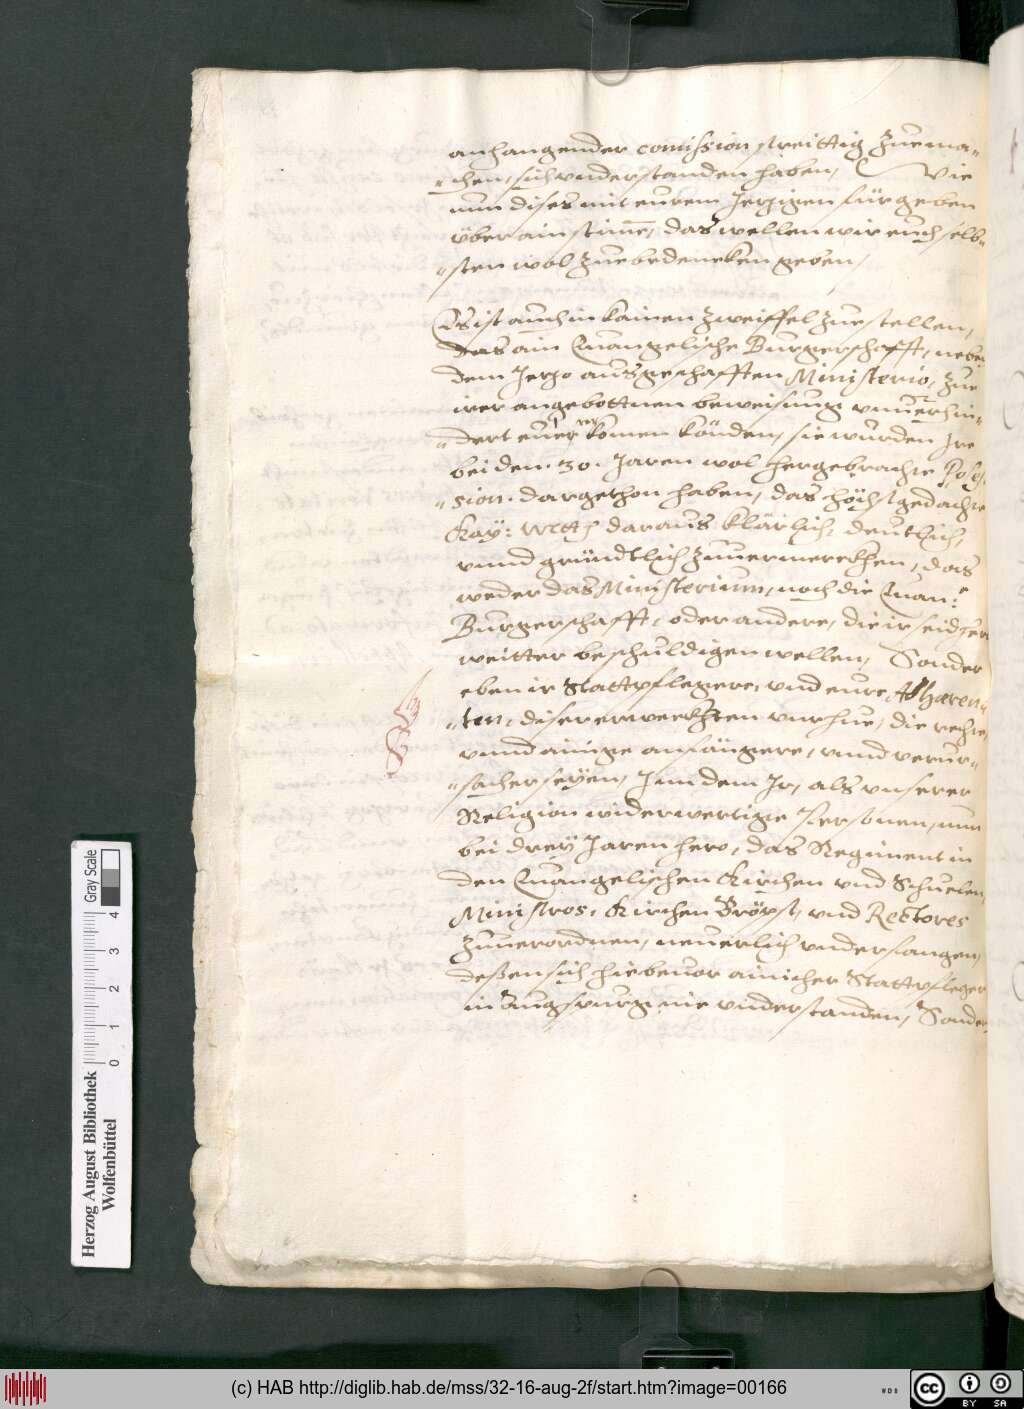 anhangender comission streittig zue ma-
chen, sich vnderstanden haben, Wie
nun dises mit eurem Jezigen fürgeben
über ain stime, das wellen wir euch selb-
sten wol zue bedenckhen geben,
Es ist auch in kainen zweiffel zue stellen,
das ain Euangelische Burgerschafft, neben
dem Jerzo ausgeschafften Ministerio, zue
irer angebottnen beweisung vnuerhin-
dert komen könden, sie wurden Jre
bei den .30. Jaren wol hergebrachte Posses-
sion. dargethon haben, das höchstgedachte
Kay: Mtt: daraus klärlich, deutlich,
vnnd gründtlich zuuermerckhen, das
weder das Ministerium, noch die Euan:
Burgerschafft, oder andere, die ir seidher
weitter beschuldigen wellen, Sonder
eben ir Stattpflegere, vnd eure Adhæren-
ten, diser erweckhten vnrhue, die rechte,
vnnd ainige anfängere, vnnd verur-
sacher seyen, Jnn dem Jr, als vnserer
Religion widerwertige Personen, nun
bei drey Jaren hero, das Regiment in
den Euangelischen Kirchen vnd Schuelen,
Ministros, Kirchen Pröpst, vnd Rectores
zuuerordnen, neuerlich vnderfangen,
deßen sich hiebeuor ainicher Stattpfleger
in Augspurg nie vnderstanden, Sonder
Herzog August Bibliothek
Wolfenbüttel
Gray Scale
0 1 2 3 4
(c) HAB http://diglib.hab.de/mss/32-16-aug-2f/start.htm?image=00166
WDB
CC BY SA